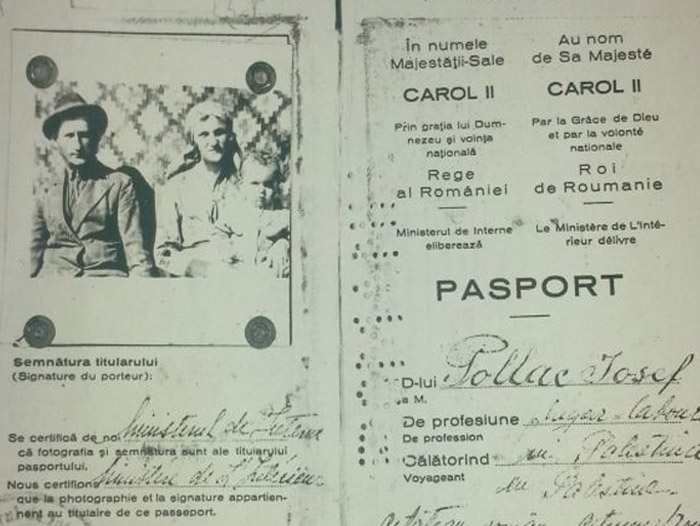 Semnătura titularului
(Signature du porteur):
Se certifică de noi Ministerul de Interne
că fotografia și semnătura sunt ale titularului
pasportului.
Nous certifions Ministère de l'Intérieur
que la photographie et la signature appartien-
nent au titulaire de ce passeport.
În numele
Majestății-Sale
CAROL II
Prin grația lui Dum-
nezeu și voința
națională
Rege
al României
Ministerul de Interne
eliberează
Au nom
de Sa Majesté
CAROL II
Par la Grâce de Dieu
et par la volonté
nationale
Roi
de Roumanie
Le Ministère de L'Inté-
rieur délivre
PASPORT
D-lui Pollac Iosef
a M.
De profesiune
De profession
Călătorind în Palestina
Voyageant en Palestine